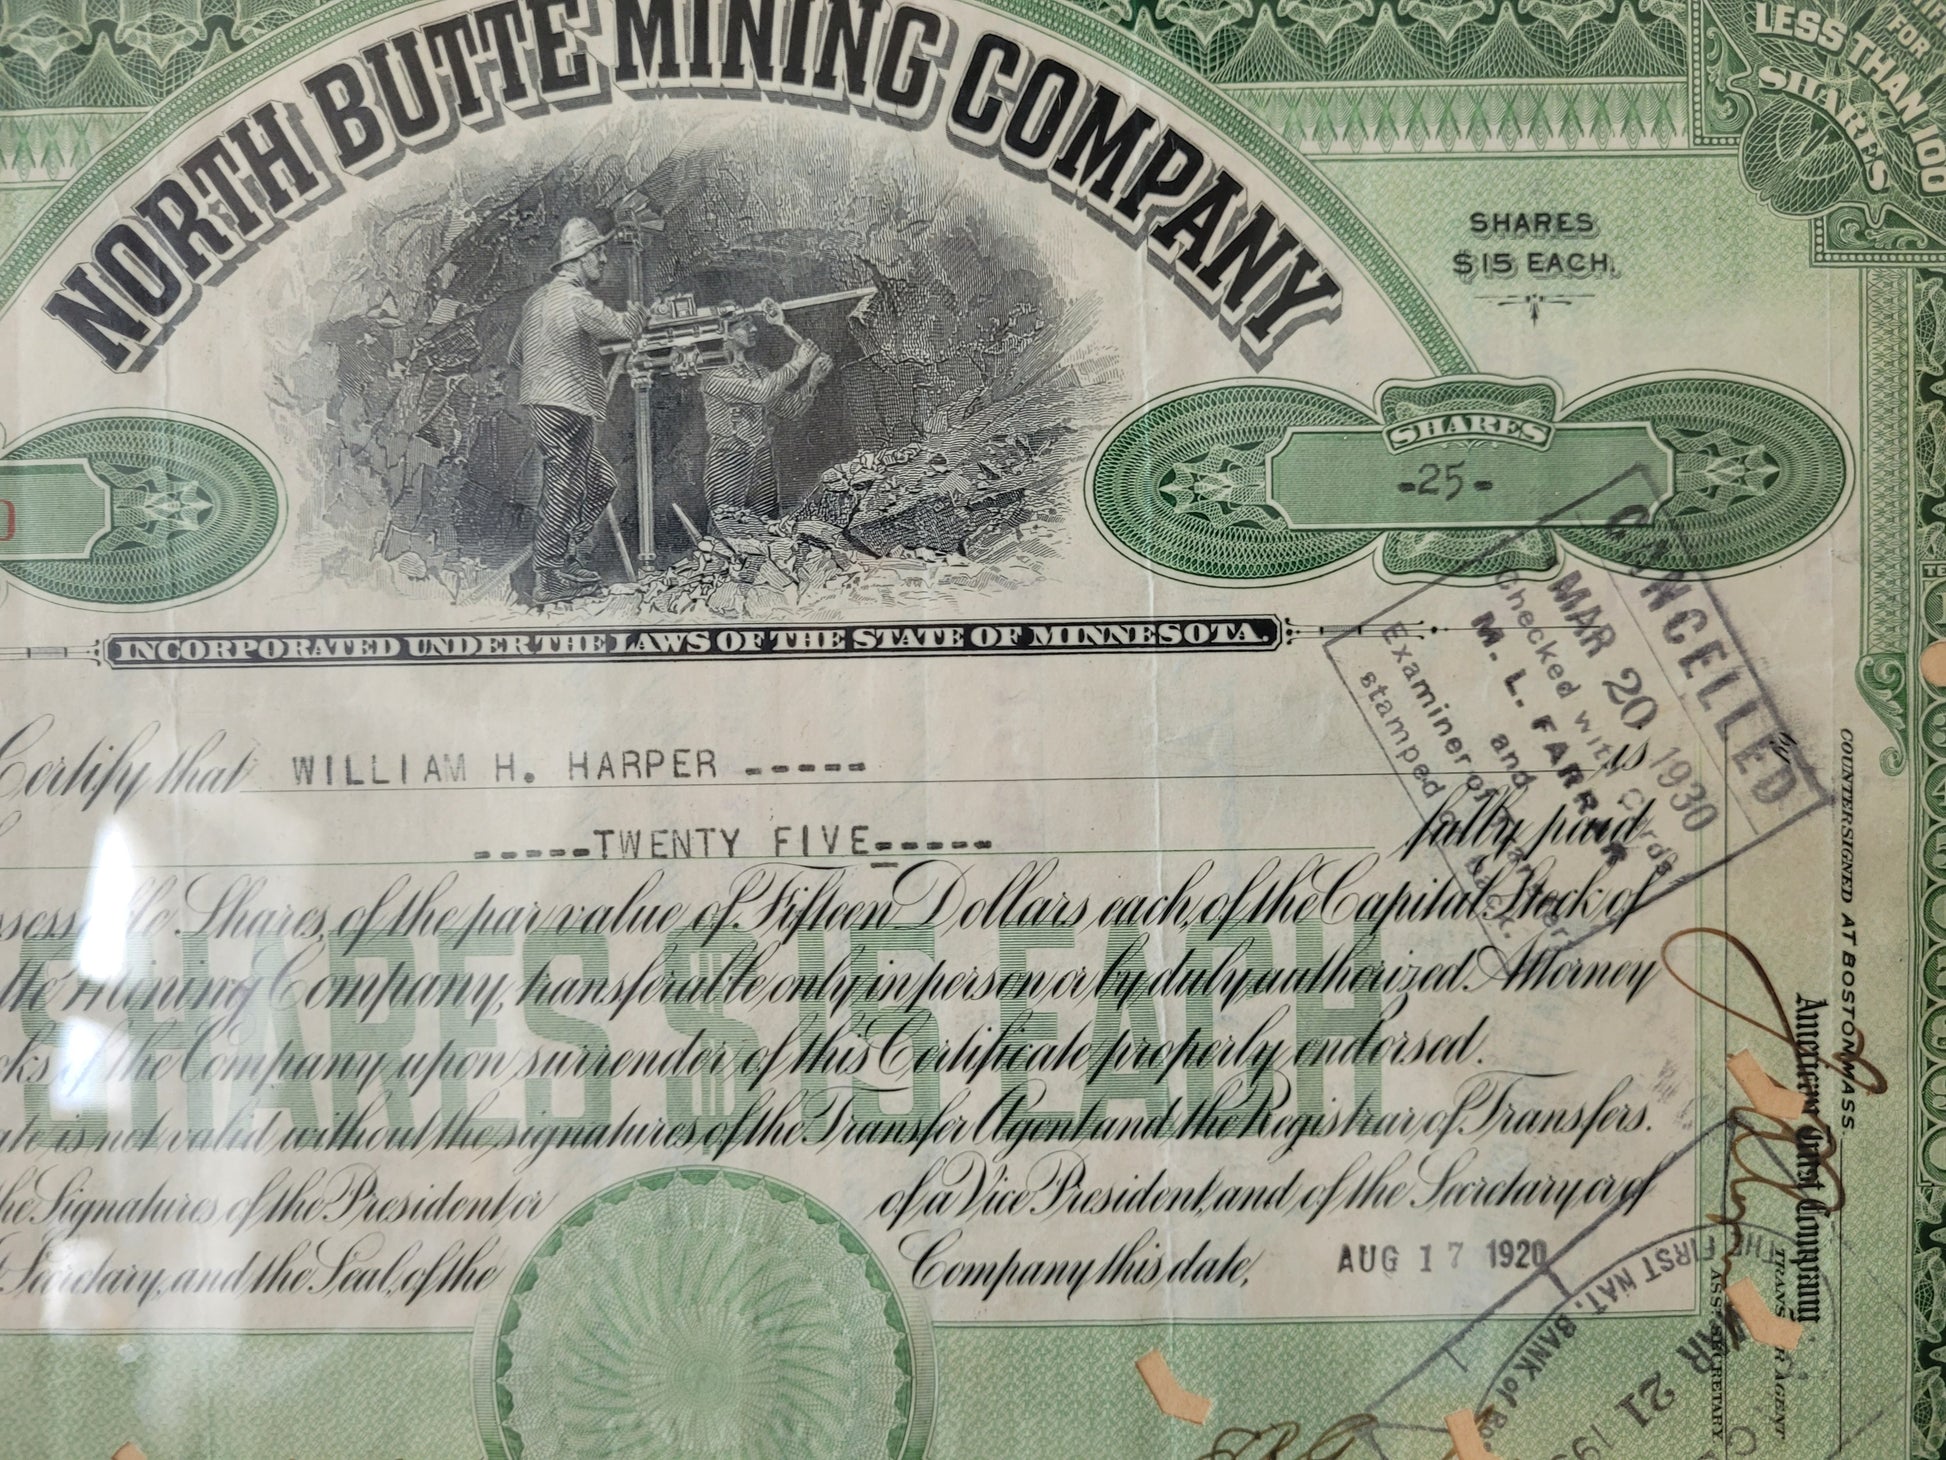 NORTH BUTTE MINING COMPANY
FOR
LESS THAN 100
SHARES
SHARES
$15 EACH.
SHARES
-25-
INCORPORATED UNDER THE LAWS OF THE STATE OF MINNESOTA.
CANCELLED
MAR 20 1930
Checked with Cards
M. L. FARR
and
Examiner of Transfers
stamped back.
Certify that WILLIAM H. HARPER ----- is
-----TWENTY FIVE----- fully paid
Shares, of the par value of Fifteen Dollars each, of the Capital Stock of
Mining Company, transferable only in person or by duly authorized Attorney
of the Company upon surrender of this Certificate properly endorsed.
is not valid without the signatures of the Transfer Agent and the Registrar of Transfers.
the Signatures of the President or of a Vice President, and of the Secretary or of
Secretary, and the Seal, of the Company this date, AUG 17 1920
SHARES $15 EACH
COUNTERSIGNED AT BOSTON, MASS.
by
American Trust Company
TRANSFER AGENT
ASS. SECRETARY
THE FIRST NAT. BANK of
MAR 21